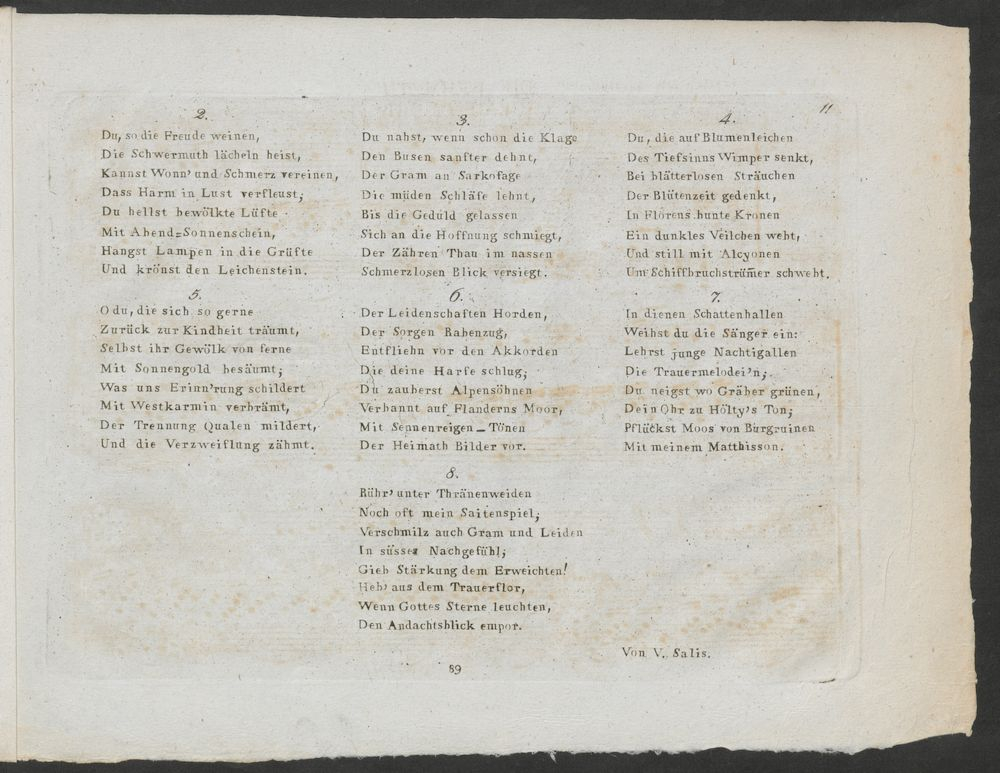 11
2.
Du, so die Freude weinen,
Die Schwermuth lächeln heist,
Kannst Wonn' und Schmerz vereinen,
Dass Harm in Lust verfleust;
Du hellst bewölkte Lüfte
Mit Abend=Sonnenschein,
Hangst Lampen in die Grüfte
Und krönst den Leichenstein.
3.
Du nahst, wenn schon die Klage
Den Busen sanfter dehnt,
Der Gram an Sarkofage
Die müden Schläfe lehnt,
Bis die Geduld gelassen
Sich an die Hoffnung schmiegt,
Der Zähren Thau im nassen
Schmerzlosen Blick versiegt.
4.
Du, die auf Blumenleichen
Des Tiefsinns Wimper senkt,
Bei blätterlosen Sträuchen
Der Blütenzeit gedenkt,
In Florens bunte Kronen
Ein dunkles Veilchen webt,
Und still mit Alcyonen
Um Schiffbruchstrüm̄er schwebt.
5.
O du, die sich so gerne
Zurück zur Kindheit träumt,
Selbst ihr Gewölk von ferne
Mit Sonnengold besäumt;
Was uns Erinn'rung schildert
Mit Westkarmin verbrämt,
Der Trennung Qualen mildert,
Und die Verzweiflung zähmt.
6.
Der Leidenschaften Horden,
Der Sorgen Rabenzug,
Entfliehn vor den Akkorden
Die deine Harfe schlug;
Du zauberst Alpensöhnen
Verbannt auf Flanderns Moor,
Mit Sennenreigen_Tönen
Der Heimath Bilder vor.
7.
In dienen Schattenhallen
Weihst du die Sänger ein:
Lehrst junge Nachtigallen
Die Trauermelodei'n;
Du neigst wo Gräber grünen,
Dein Ohr zu Hölty's Ton;
Pflückst Moos von Burgruinen
Mit meinem Matthisson.
8.
Rühr' unter Thränenweiden
Noch oft mein Saitenspiel;
Verschmilz auch Gram und Leiden
In süsses Nachgefühl;
Gieb Stärkung dem Erweichten!
Heb' aus dem Trauerflor,
Wenn Gottes Sterne leuchten,
Den Andachtsblick empor.
Von V. Salis.
89